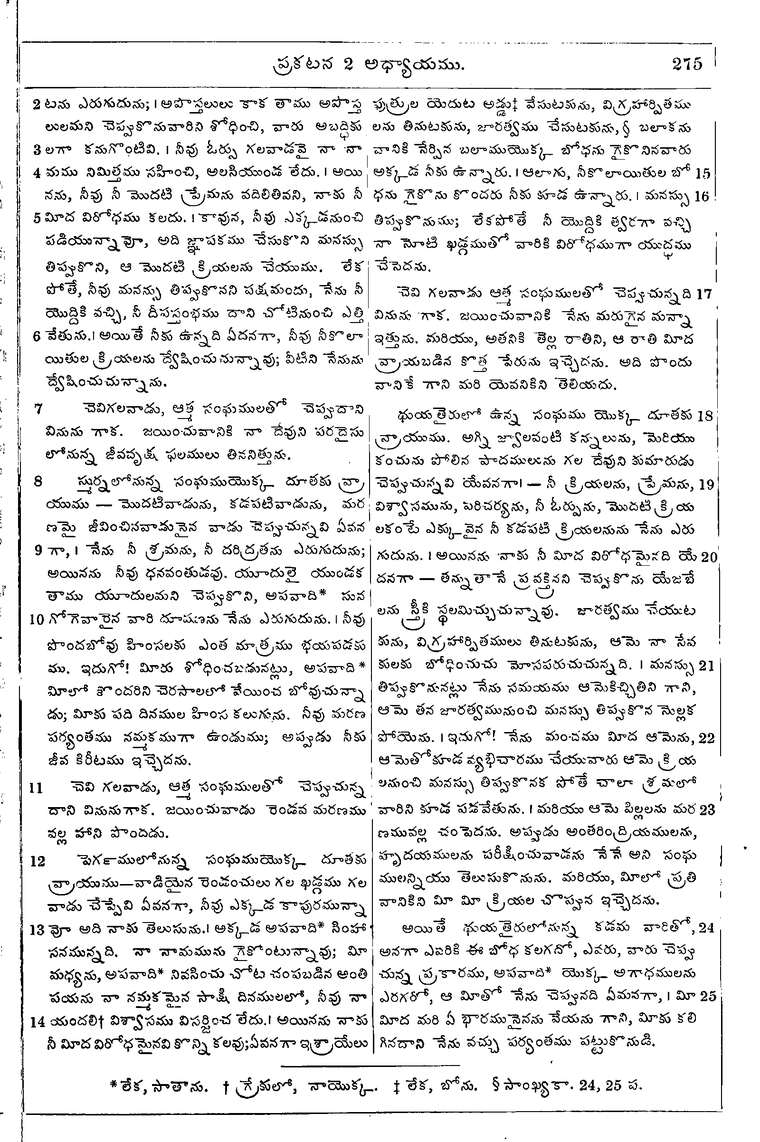 ప్రకటన 2 అధ్యాయము.
275
2 టను ఎరుగుదును; । అపొస్తలులు కాక తాము అపొస్త
లులమని చెప్పుకొనువారిని శోధించి, వారు అబద్ధికు
3 లగా కనుగొంటివి. । నీవు ఓర్పు గలవాడవై నా నా
4 మము నిమిత్తము సహించి, అలసియుండ లేదు. । అయి
నను, నీవు నీ మొదటి ప్రేమను వదిలితివని, నాకు నీ
5 మీద విరోధము కలదు. । కావున, నీవు ఎక్కడనుంచి
పడియున్నావో, అది జ్ఞాపకము చేసుకొని మనస్సు
తిప్పుకొని, ఆ మొదటి క్రియలను చేయుము. లేక
పోతే, నీవు మనస్సు తిప్పుకొనని పక్షమందు, నేను నీ
యొద్దికి వచ్చి, నీ దీపస్తంభము దాని చోటినుంచి ఎత్తి
6 వేతును. । అయితే నీకు ఉన్నది ఏదనగా, నీవు నీకొలా
యితుల క్రియలను ద్వేషించుచున్నావు; వీటిని నేనును
ద్వేషించుచున్నాను.
7 చెవిగలవాడు, ఆత్మ సంఘములతో చెప్పుదాని
వినును గాక. జయించువానికి నా దేవుని పరదైసు
లోనున్న జీవవృక్ష ఫలములు తిననిత్తును.
8 స్ముర్నలోనున్న సంఘముయొక్క దూతకు వ్రా
యుము — మొదటివాడును, కడపటివాడును, మర
ణమై జీవించినవాడునైన వాడు చెప్పుచున్నవి ఏవన
9 గా, । నేను నీ శ్రమను, నీ దరిద్రతను ఎరుగుదును;
అయినను నీవు ధనవంతుడవు. యూదులై యుండక
తాము యూదులమని చెప్పుకొని, అపవాది* సున
10 గోగెవారైన వారి దూషణను నేను ఎరుగుదును. । నీవు
పొందబోవు హింసలకు ఎంత మాత్రము భయపడకు
ము. ఇదుగో! మీరు శోధించబడునట్లు, అపవాది*
మీలో కొందరిని చెరసాలలో వేయించ బోవుచున్నా
డు; మీకు పది దినముల హింస కలుగును. నీవు మరణ
పర్యంతము నమ్మకముగా ఉండుము; అప్పుడు నీకు
జీవ కిరీటము ఇచ్చెదను.
11 చెవి గలవాడు, ఆత్మ సంఘములతో చెప్పుచున్న
దాని వినునుగాక. జయించువాడు రెండవ మరణము
వల్ల హాని పొందడు.
12 పెర్గాములోనున్న సంఘముయొక్క దూతకు
వ్రాయును—వాడియైన రెండంచులు గల ఖడ్గము గల
వాడు చేప్పేవి ఏవనగా, నీవు ఎక్కడ కాపురమున్నా
13 వో అది నాకు తెలుసును. । అక్కడ అపవాది* సింహా
సనమున్నది. నా నామమును గైకొంటున్నావు; మీ
మధ్యను, అపవాది* నివసించు చోట చంపబడిన అంతి
పయను నా నమ్మకమైన సాక్షి దినములలో, నీవు నా
14 యందలి† విశ్వాసము విసర్జించ లేదు. । అయినను నాకు
నీ మీద విరోధమైనవి కొన్ని కలవు; ఏవనగా ఇశ్రాయేలు
పుత్రుల యెదుట అడ్డు‡ వేసుటకును, విగ్రహార్పితము
లను తినుటకును, జారత్వము చేసుటకును,§ బలాకను
వానికి నేర్పిన బలాముయొక్క బోధను గైకొనినవారు
అక్కడ నీకు ఉన్నారు. । ఆలాగు, నీకొలాయితుల బో 15
ధను గైకొను కొందరు నీకు కూడ ఉన్నారు. । మనస్సు 16
తిప్పుకొనుము; లేకపోతే నీ యొద్దికి త్వరగా వచ్చి
నా నోటి ఖడ్గముతో వారికి విరోధముగా యుద్ధము
చేసెదను.
చెవి గలవాడు ఆత్మ సంఘములతో చెప్పుచున్నది 17
వినును గాక. జయించువానికి నేను మరుగైన మన్నా
ఇత్తును. మరియు, అతనికి తెల్ల రాతిని, ఆ రాతి మీద
వ్రాయబడిన కొత్త పేరును ఇచ్చెదను. అది పొందు
వానికే గాని మరి యెవనికిని తెలియదు.
థుయతైరులో ఉన్న సంఘము యొక్క దూతకు 18
వ్రాయుము. అగ్ని జ్వాలవంటి కన్నులును, మెరియు
కంచును పోలిన పాదములును గల దేవుని కుమారుడు
చెప్పుచున్నవి యేవనగా। — నీ క్రియలను, ప్రేమను, 19
విశ్వాసమును, పరిచర్యను, నీ ఓర్పును, మొదటి క్రియ
లకంటే ఎక్కువైన నీ కడపటి క్రియలనును నేను ఎరు
గుదును. । అయినను నాకు నీ మీద విరోధమైనది యే 20
దనగా — తన్నుతానే ప్రవక్త్రినని చెప్పుకొను యేజబే
లను స్త్రీకి స్థలమిచ్చుచున్నావు. జారత్వము చేయుట
కును, విగ్రహార్పితములు తినుటకును, ఆమె నా సేవ
కులకు బోధించుచు మోసపరుచుచున్నది. । మనస్సు 21
తిప్పుకొనునట్లు నేను సమయము ఆమెకిచ్చితిని గాని,
ఆమె తన జారత్వమునుంచి మనస్సు తిప్పుకొన నొల్లక
పోయెను. । ఇదుగో! నేను మంచము మీద ఆమెను, 22
ఆమెతోకూడ వ్యభిచారము చేయువారు ఆమె క్రియ
లనుంచి మనస్సు తిప్పుకొనక పోతే చాలా శ్రమలో
వారిని కూడ పడవేతును. । మరియు ఆమె పిల్లలను మర 23
ణమువల్ల చంపెదను. అప్పుడు అంతరింద్రియములను,
హృదయములను పరీక్షించువాడను నేనే అని సంఘ
ములన్నియు తెలుసుకొనును. మరియు, మీలో ప్రతి
వానికిని మీ మీ క్రియల చొప్పున ఇచ్చెదను.
అయితే థుయతైరులోనున్న కడమ వారితో, 24
అనగా ఎవరికి ఈ బోధ కలగదో, ఎవరు, వారు చెప్పు
చున్న ప్రకారము, అపవాది* యొక్క అగాధములను
ఎరగరో, ఆ మీతో నేను చెప్పునది ఏమనగా, । మీ 25
మీద మరి ఏ భారమునైనను వేయను గాని, మీకు కలి
గినదాని నేను వచ్చు పర్యంతము పట్టుకొనుడి.
* లేక, సాతాను. † గ్రేకులో, నాయొక్క. ‡ లేక, బోను. § సాంఖ్యకా. 24, 25 ప.